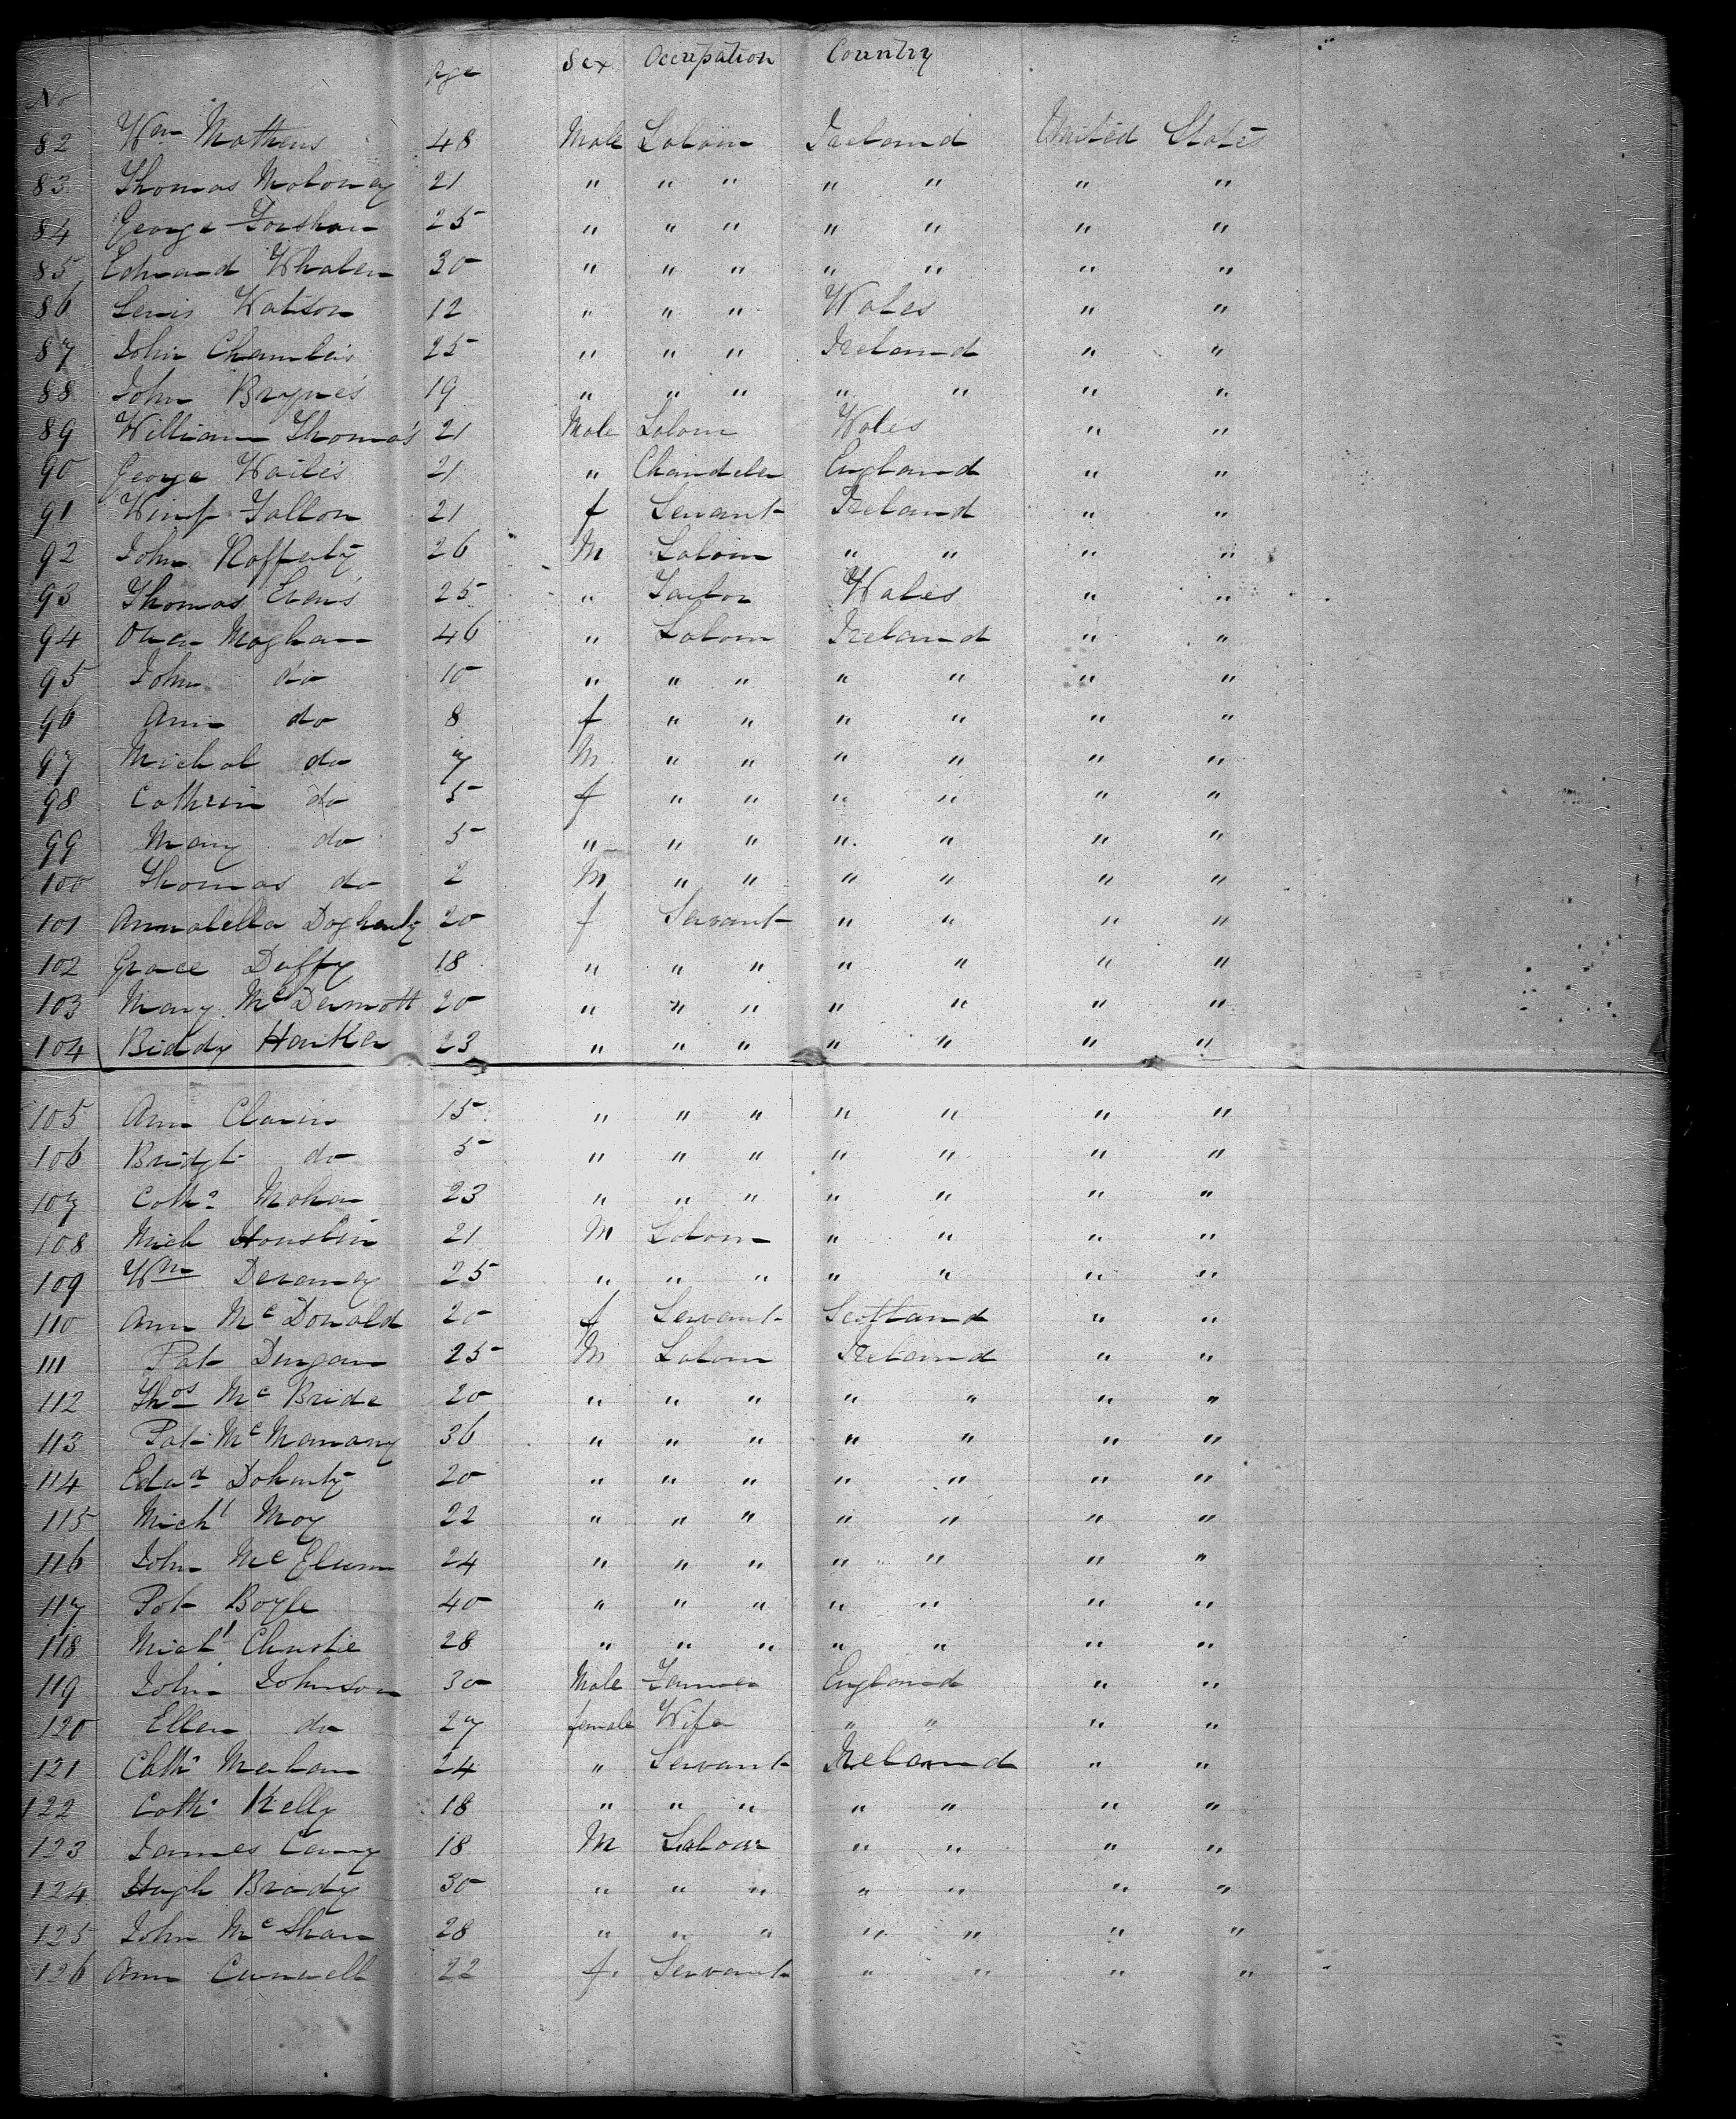 No Age Sex Occupation Country
82 Wm Mathews 48 Male Labour Ireland United States
83 Thomas Moloney 21 " " " " " " "
84 George 25 " " " " " " "
85 Edward Whalen 30 " " " " " " "
86 Lewis Watson 12 " " " Wales " "
87 John Chambers 25 " " " Ireland " "
88 John Brynes 19 " " " " " " "
89 William Thomas 21 Male Labour Wales " "
90 George Waites 21 " Chandeler England " "
91 Winf Fallon 21 f Servant Ireland " "
92 John Rafferty 26 M Labour " " " "
93 Thomas Evans 25 " Tailor Wales " "
94 Owen Moghan 46 " Labour Ireland " "
95 John do 10 " " " " " " "
96 Ann do 8 f " " " " " "
97 Michal do 7 M " " " " " "
98 Cathrin do 5 f " " " " " "
99 Mary do 5 " " " " " " "
100 Thomas do 2 M " " " " " "
101 Annabella Dogherty 20 f Servant " " " "
102 Grace Duffy 18 " " " " " " "
103 Mary McDermott 20 " " " " " " "
104 Biddy Harken 23 " " " " " " "
105 Ann 15 " " " " " " "
106 Bridgt do 5 " " " " " " "
107 Cath Mohan 23 " " " " " " "
108 Mich 21 M Labour " " " "
109 Wm Devaney 25 " " " " " " "
110 Ann McDonald 20 f Servant Scotland " "
111 Pat Dungan 25 M Labour Ireland " "
112 Thos McBride 20 " " " " " " "
113 Pat McManany 36 " " " " " " "
114 Edwd Doherty 20 " " " " " " "
115 Michl Moy 22 " " " " " " "
116 John 24 " " " " " " "
117 Pat Boyle 40 " " " " " " "
118 Michl Christie 28 " " " " " " "
119 John Johnson 30 Male Farmer England " "
120 Ellen do 27 female Wife " " " "
121 Cath 24 " Servant Ireland " "
122 Cath Kelly 18 " " " " " " "
123 James 18 M Labour " " " "
124 Hugh Brady 30 " " " " " " "
125 John McShan 28 " " " " " " "
126 Ann 22 f. Servant " " " "